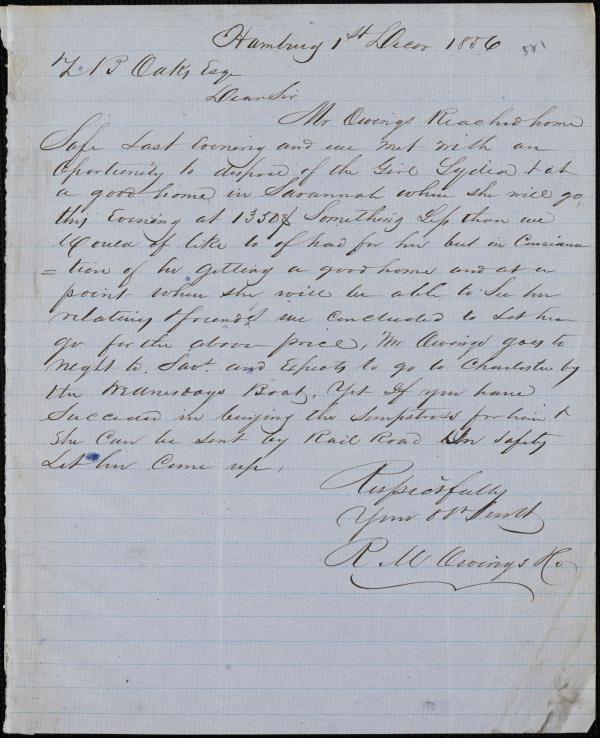 Hamburg 1st Decer 1856
581
Z B Oaks Esqr
Dear Sir
Mr Owings Reached home
Safe Last Evening and we met with an
Opertunity to dispose of the Girl Lydia & at
a good home in Savannah where she will go
this Evening at 1350$ Something Less than we
Would of like to of had for her but in Consider
=tion of her getting a good home and at a
point where she will be able to See her
relatives & friends we concluded to Let her
go for the above price, Mr Owings goes to
Night to Savh and Expects to go to Charleston by
the Wednesdays Boat, Yet If you have
Succeeded in buying the Simpstress for him &
She Can be sent by Rail Road In Safety
Let her Come up,
Respectfully
Your Obt Servt
R M Owings & Co